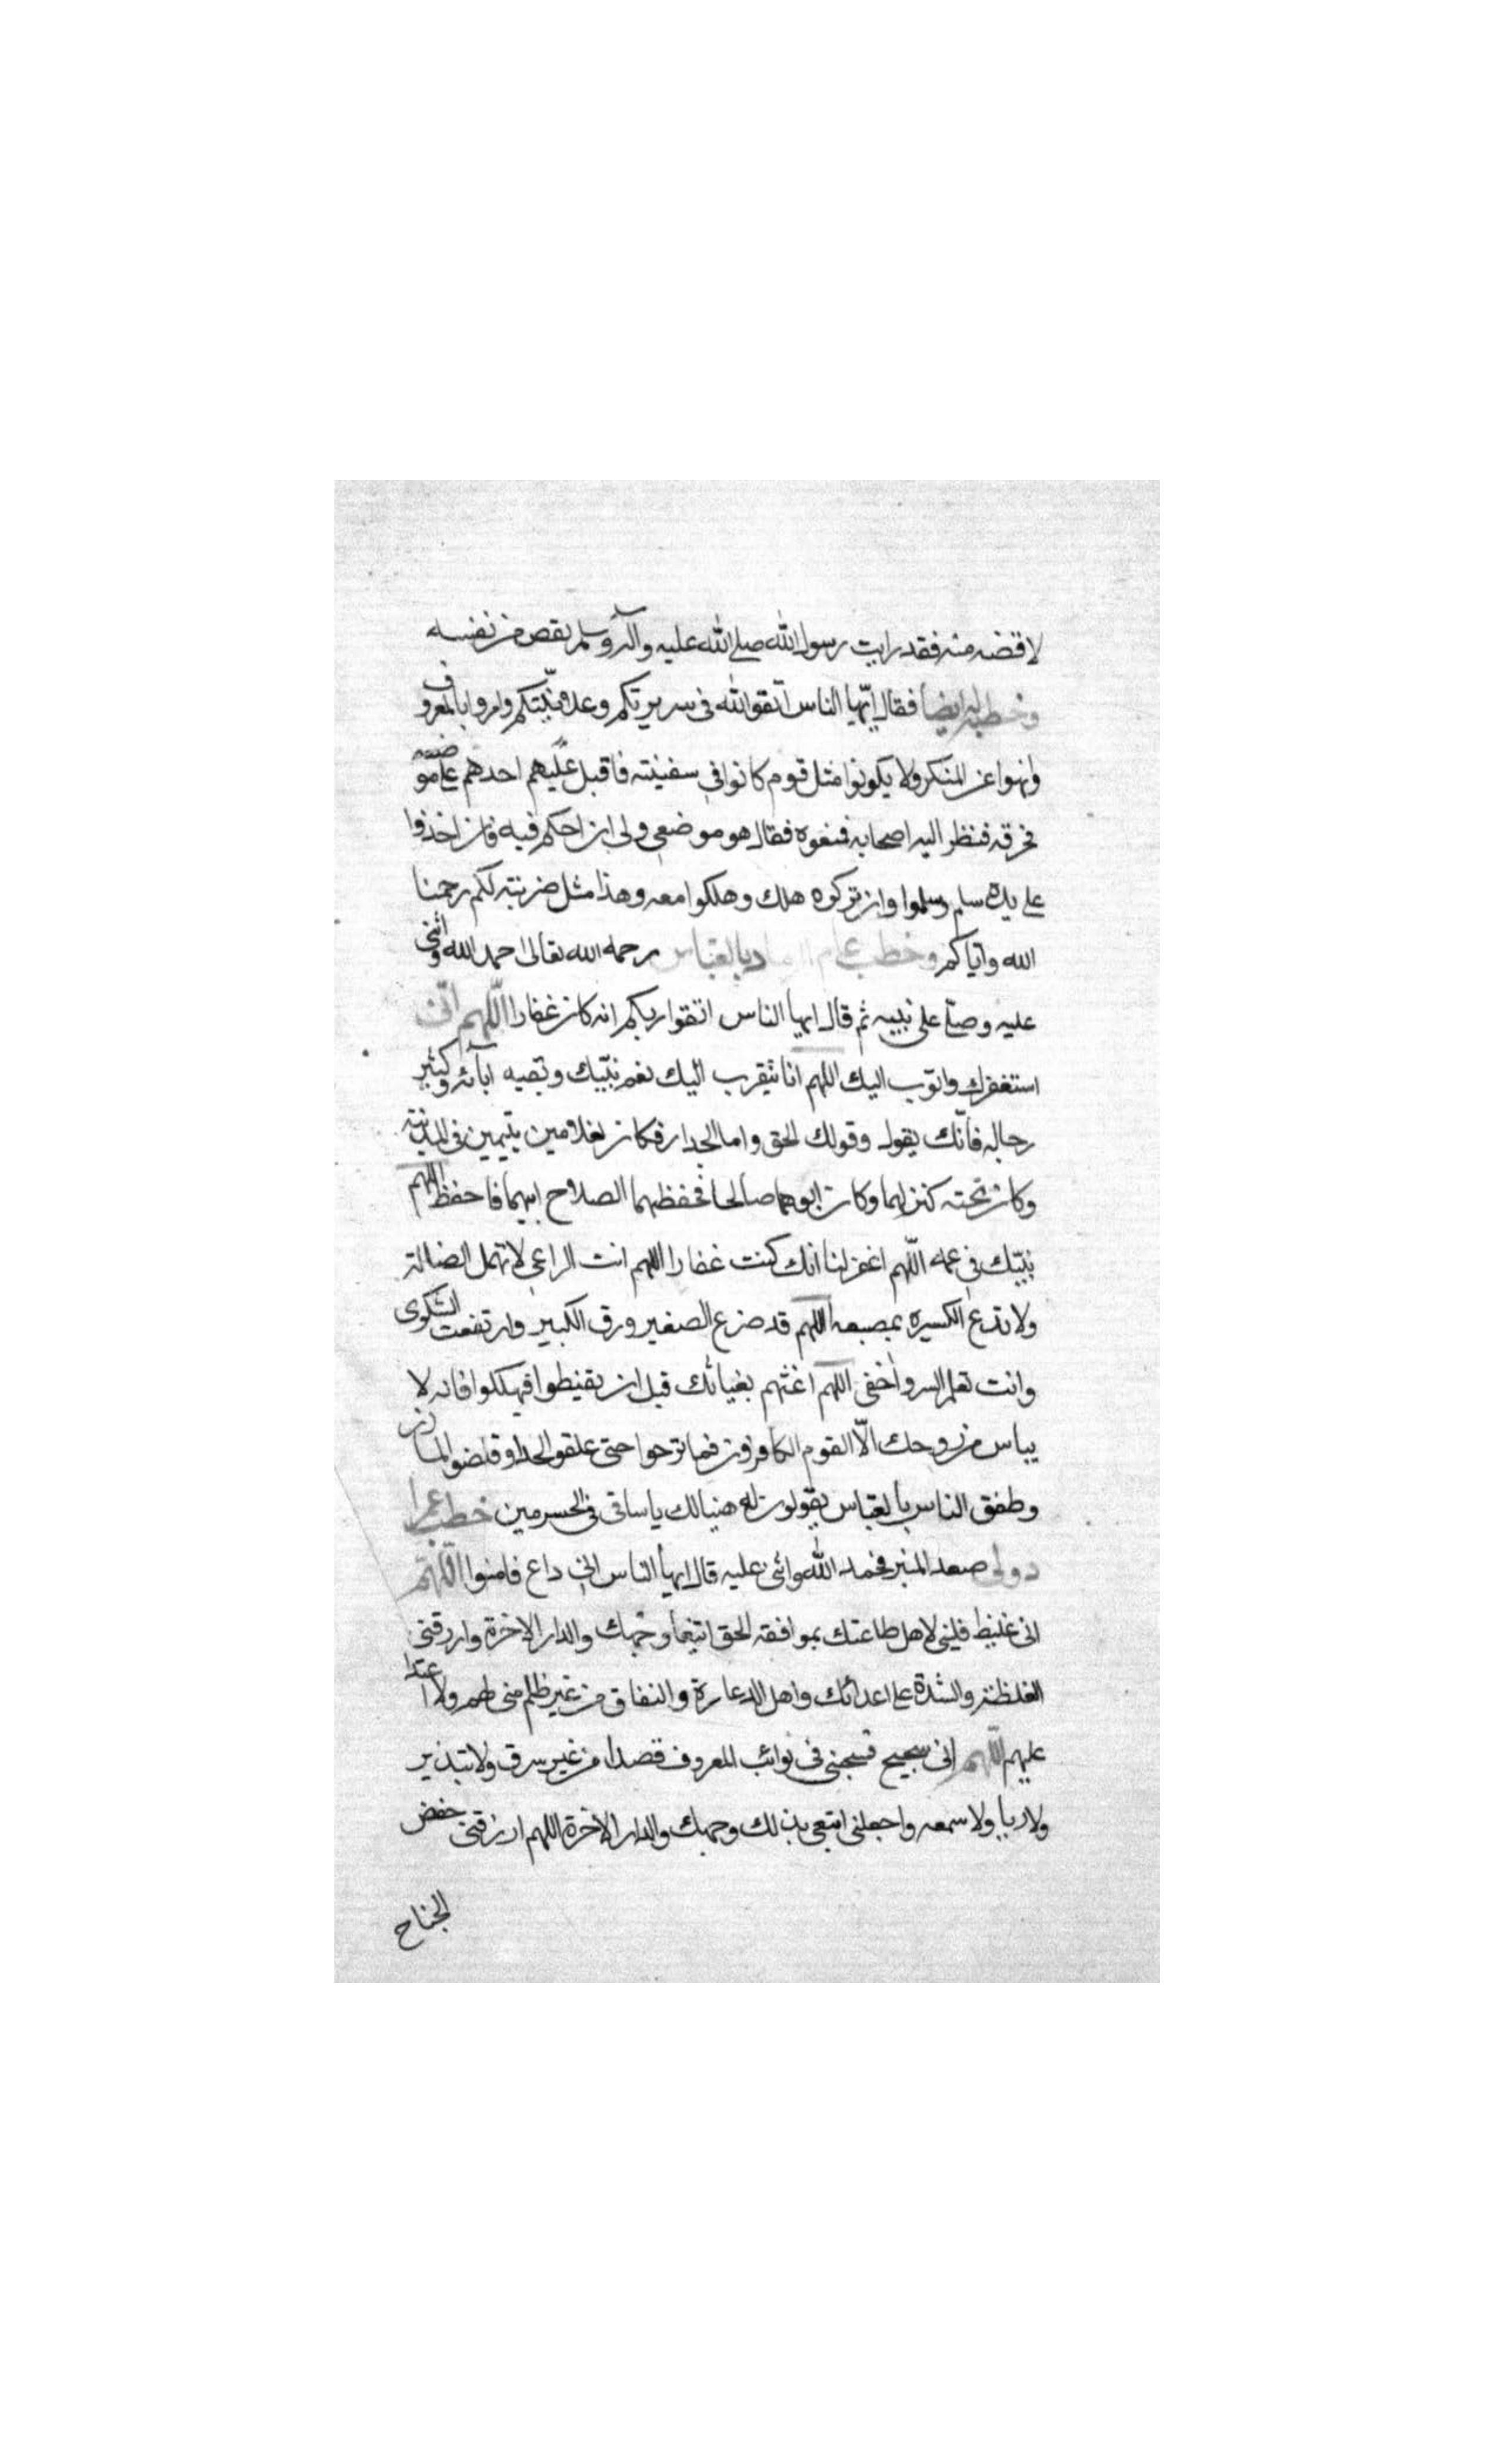 لاقضه منه فقد رايت رسول الله صلى الله عليه وآله وسلم يقص من نفسه
وخطبة ايضا فقال ايّها الناس اتقو الله فى سريرتكم وعلانيتكم وامروا بالمعروف
وانهوا عن المنكر ولا يكونوا مثل قوم كانوا فى سفينته فاقبل عليهم احدهم على موضعه
فخرقه فنظر اليه اصحابه فمنعوه فقال هو موضعى ولى ان احكم فيه فان اخذوا
على يده سلم وسلموا وان تركوه هلك وهلكوا معه وهذا مثل ضربته لكم رحمنا
الله واياكم وخطب عام الرمادة بالعباس رحمه الله تعالى احمد الله واثنى
عليه وصلّى على نبيه ثم قال ايها الناس اتقوا ربكم انه كان غفارا اللّهم انّى
استغفرك واتوب اليك اللهم انا نتقرب اليك بعم نبيّك وبقيه آبائه وكثير
رجاله فانّك يقول وقولك الحق واما الجدار فكان لغلامين يتيمين فى المدينة
وكان تحته كنز لهما وكان ابوهما صالحا فحفظهما الصلاح ابيهما فاحفظ اللهم
نبيّك فى عمه اللّهم اغفر لنا انك كنت غفارا اللهم انت الراعى لا تهمل الضالة
ولا تدع الكسيره بمصيعه اللهم قد ضرع الصغير ورق الكبير وارتفعت الشكوى
وانت تعلم السر واخفى اللهم اغثهم بغياثك قبل ان يقنطوا فيهلكوا فانه لا
يياس من روحك الّا القوم الكافرون فما برحوا حتى علقو الحداو قلضو المازر
وطفق الناس بالعباس يقولون له هنيالك يا ساقى فى الحسرمين خطب عمر اذ
دولى صعد المنبر فحمد الله واثنى عليه قال ايها الناس انى داع فامنوا اللّهم
انى غليظ فلينى لاهل طاعتك بموافقه الحق ابتغا وجهك والدار الاخرة وارزقنى
الغلظة والشدة على اعدائك واهل الدعارة والنفاق من غير ظلم منى لهم ولا اعتدا
عليهم اللّهم انى سحيح فسجنى فى نوائب المعروف قصدا من غير سرق ولا تبذير
ولا ريا ولا سمعه واجعلنى ابتغى بذلك وجهك والدار الاخرة اللهم ارزقنى خفض
الجناح